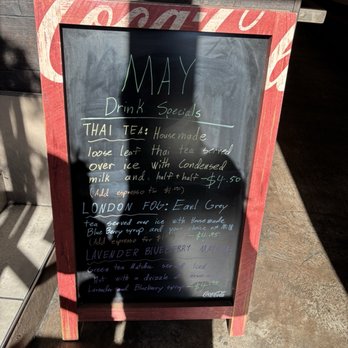 Coca-Cola
MAY
Drink Specials
THAI TEA: Housemade
loose leaf thai tea served
over ice with Condensed
milk and half + half - $4.50
(Add espresso for $1.00)
LONDON FOG: Earl Grey
tea served over ice with housemade
Blue Berry syrup and your choice of
(Add espresso for
LAVENDER BLUEBERRY
Green tea Matcha served iced
with a drizzle
Lavender and Blueberry syrup